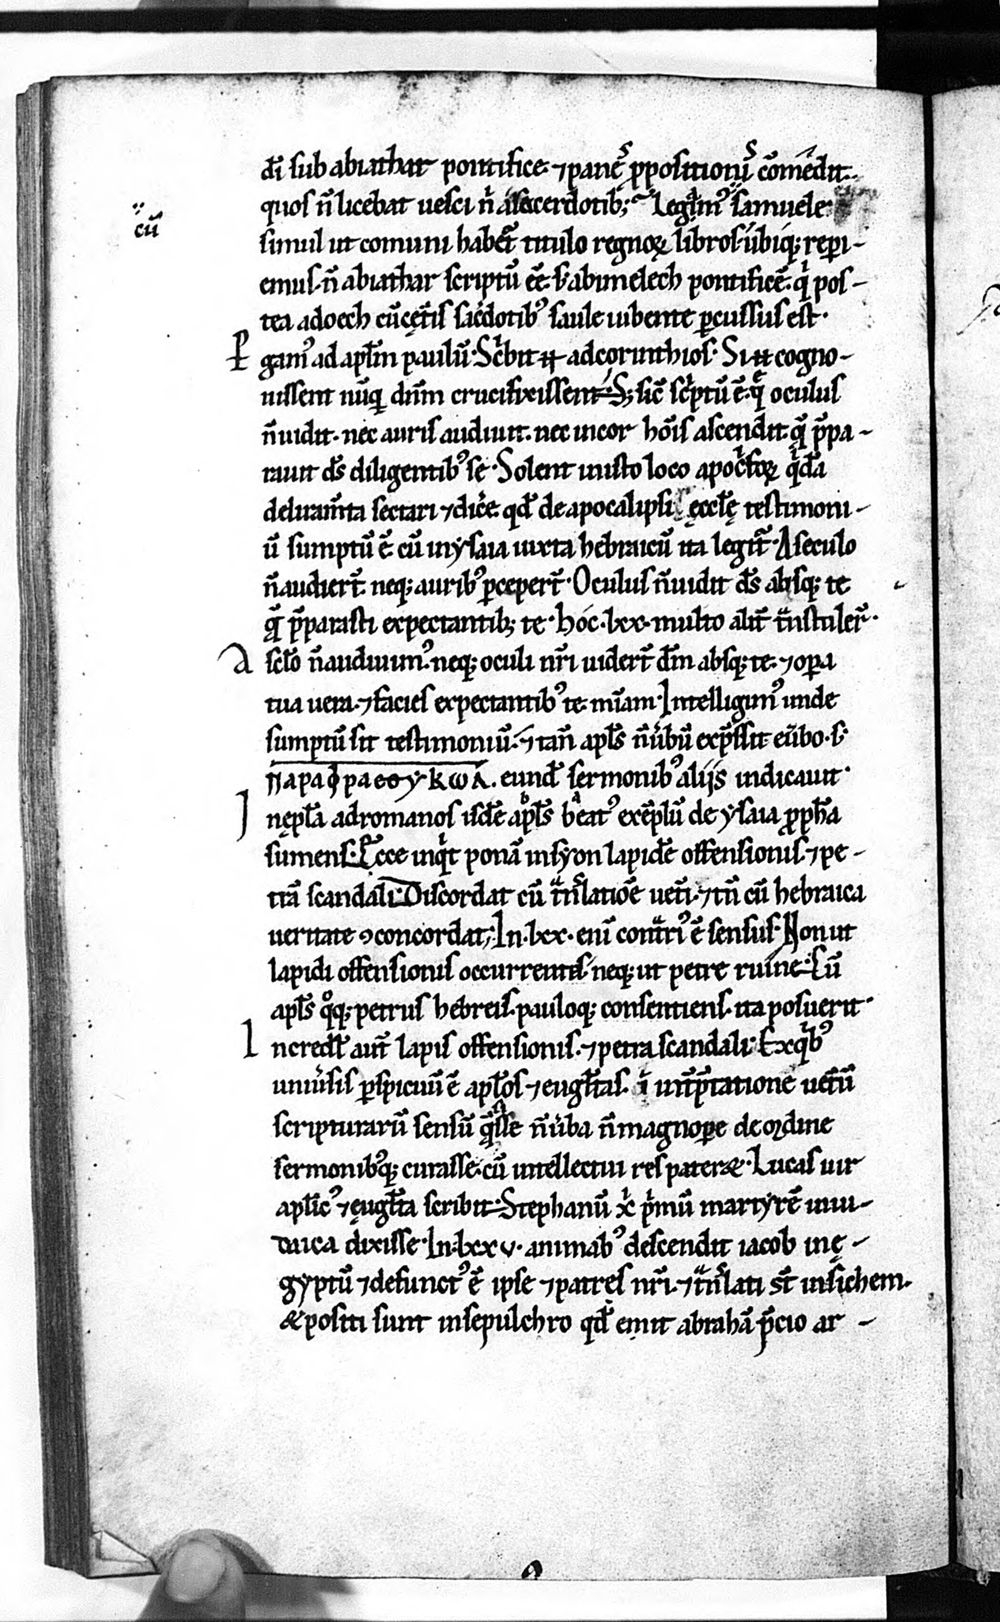 cū
dī sub abiathar pontifice· ⁊ panes ꝓpositionis comēdit·
quos n̄ licebat uesci n̄ a sacerdotib; Legim᷒ samuele
simul ut comuni habet᷑ titulo regnoꝝ libros· ubiq; repi-
emus· n̄ abiathar scriptū eē· sꝫ abimelech pontificē· q̇ pos-
tea a doech cū cęt᷑is sac̄dotib᷒ saule iubente ꝑcussus est·
P gam᷒ ad aplm̄ paulū· Sc̄bit ad corinthios· Si cogno-
uissent nūq̄ dn̄m crucifixissent· Sꝫ sic̄ sc̄ptū ē· q̇ oculus
n̄ uidit· nec auris audiuit· nec in cor hoīs ascendit· q̄ p̄pa-
rauit ds̄ diligentib᷒ se· Solent in isto loco apoc̄foꝝ q̇dā
deliram̄ta sectari ⁊ dic̄e qd̄ de apocalipsi ęcclę testimoni-
ū sumptū ē· cū in ysaia iuxta hebraicū ita legit᷑· A seculo
n̄ audiert̄· neq; aurib᷒ ꝑcepert̄· Oculus n̄ uidit ds̄ absq; te
q̄ p̄parasti expectantib; te· hoc· lxx· multo alit᷑ t᷑nstuler̄·
A sclō n̄ audiuim᷒· neq; oculi nr̄i uidert̄ dm̄ absq; te· ⁊ opa
tua uera· ⁊ facies expectantib᷒ te· mīam· Intelligim᷒ unde
sumptū sit testimoniū· ⁊ tan̄ apls̄ n̄ ūbū exp̄ssit e ūbo· sꝫ
παραφραεσυκωλ· eund̄ sermonib᷒ aliis indicauit·
I n ępla ad romanos isdē apls̄ beat᷒ exēplū de ysaia ꝓpha
sumens· Ecce inq̇t ponā in syon lapidē offensionis· ⁊ pe-
trā scandali· Discordat cū t᷑nlatiōe uet̄i· ⁊ tn̄ cū hebraica
ueritate ꝯcordat; In· lxx· enī cont᷑ri᷒ ē sensus· Non ut
lapidi offensionis occurrentis· neq; ut petre ruine· Cū
apls̄ qͦq; petrus hebreis· pauloq; consentiens· ita posuerit·
I ncredl̄ aut̄ lapis offensionis· ⁊ petra scandali· Ex q̇b᷒
uniūsis ꝑspicuū ē aplos ⁊ eugl̄tas· ī int̄p̄tatione uet̄ū
scripturarū sensū q̄sisse n̄ ūba n̄ magnopere de ordine
sermonib᷒q; curasse· cū intellectui res pateręt· Lucas uir
aplic᷒ ⁊ eugl̄ta scribit· Stephanū x̄c ṗmū martyrē in iu-
daica dixisse· In· lxxv· animab᷒ descendit iacob in ę-
gyptū ⁊ defunct᷒ ē ipse ⁊ patres nr̄i· ⁊ t᷑nlati st̄ in sichem·
& positi sunt in sepulchro qd̄ emit abrahā p̄cio ar-